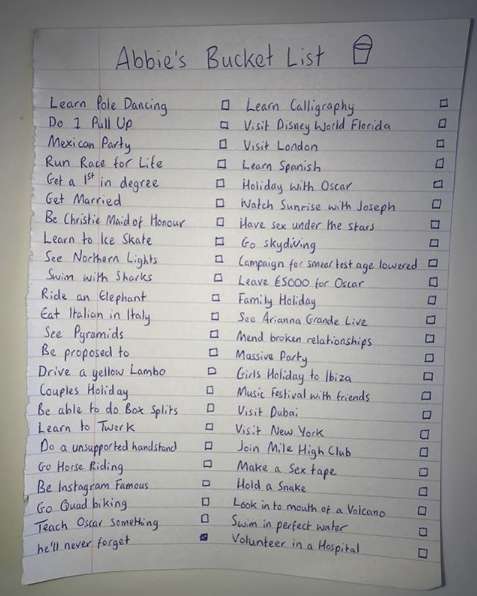 Abbie's Bucket List
Learn Pole Dancing
Do 1 Pull Up
Mexican Party
Run Race for Life
Get a 1st in degree
Get Married
Be Christie Maid of Honour
Learn to Ice Skate
See Northern Lights
Swim with Sharks
Ride an Elephant
Eat Italian in Italy
See Pyramids
Be proposed to
Drive a yellow Lambo
Couples Holiday
Be able to do Box Splits
Learn to Twerk
Do a unsupported handstand
Go Horse Riding
Be Instagram Famous
Go Quad biking
Teach Oscar Something
he'll never forget
Learn Calligraphy
Visit Disney World Florida
Visit London
Learn Spanish
Holiday with Oscar
Watch Sunrise with Joseph
Have sex under the stars
Go skydiving
Campaign for smear test age lowered
Leave £5000 for Oscar
Family Holiday
See Arianna Grande Live
Mend broken relationships
Massive Party
Girls Holiday to Ibiza
Music Festival with friends
Visit Dubai
Visit New York
Join Mile High Club
Make a Sex tape
Hold a Snake
Look in to mouth of a Volcano
Swim in perfect water
Volunteer in a Hospital